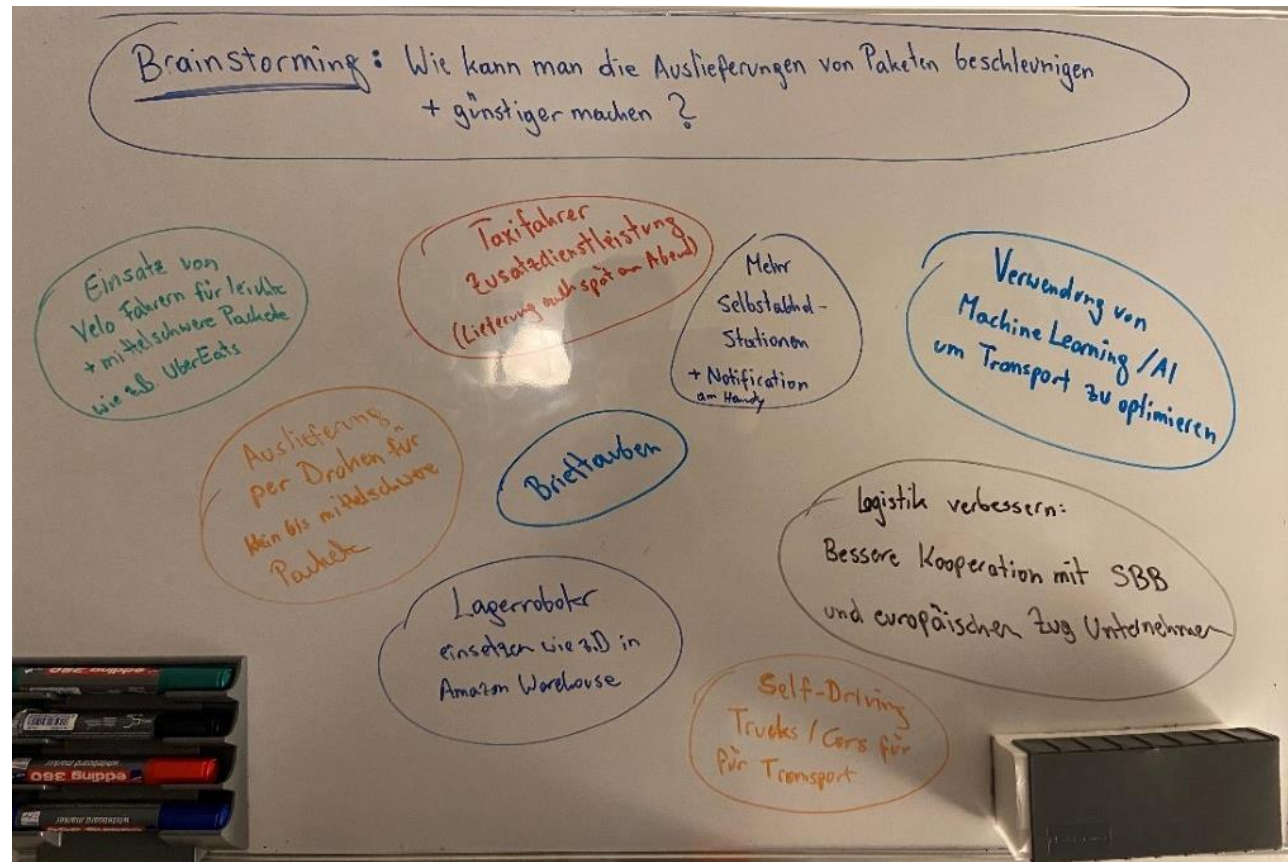 Brainstorming: Wie kann man die Auslieferungen von Paketen beschleunigen
+ günstiger machen ?
Einsatz von
Velo Fahrern für leichte
+ mittelschwere Packete
wie z.B. UberEats
Taxifahrer
Zusatzdienstleistung
(Lieferung auch spät am Abend)
Mehr
Selbstabhol-
Stationen
+ Notification
am Handy
Verwendung von
Machine Learning / AI
um Transport zu optimieren
Auslieferung
per Drohen für
klein bis mittelschwere
Packete
Brieftauben
Logistik verbessern:
Bessere Kooperation mit SBB
und europäischen Zug Unternehmen
Lagerroboter
einsetzen wie z.B in
Amazon Warehouse
Self-Driving
Trucks / Cars für
für Transport
edding 360
edding 360
whiteboard marker